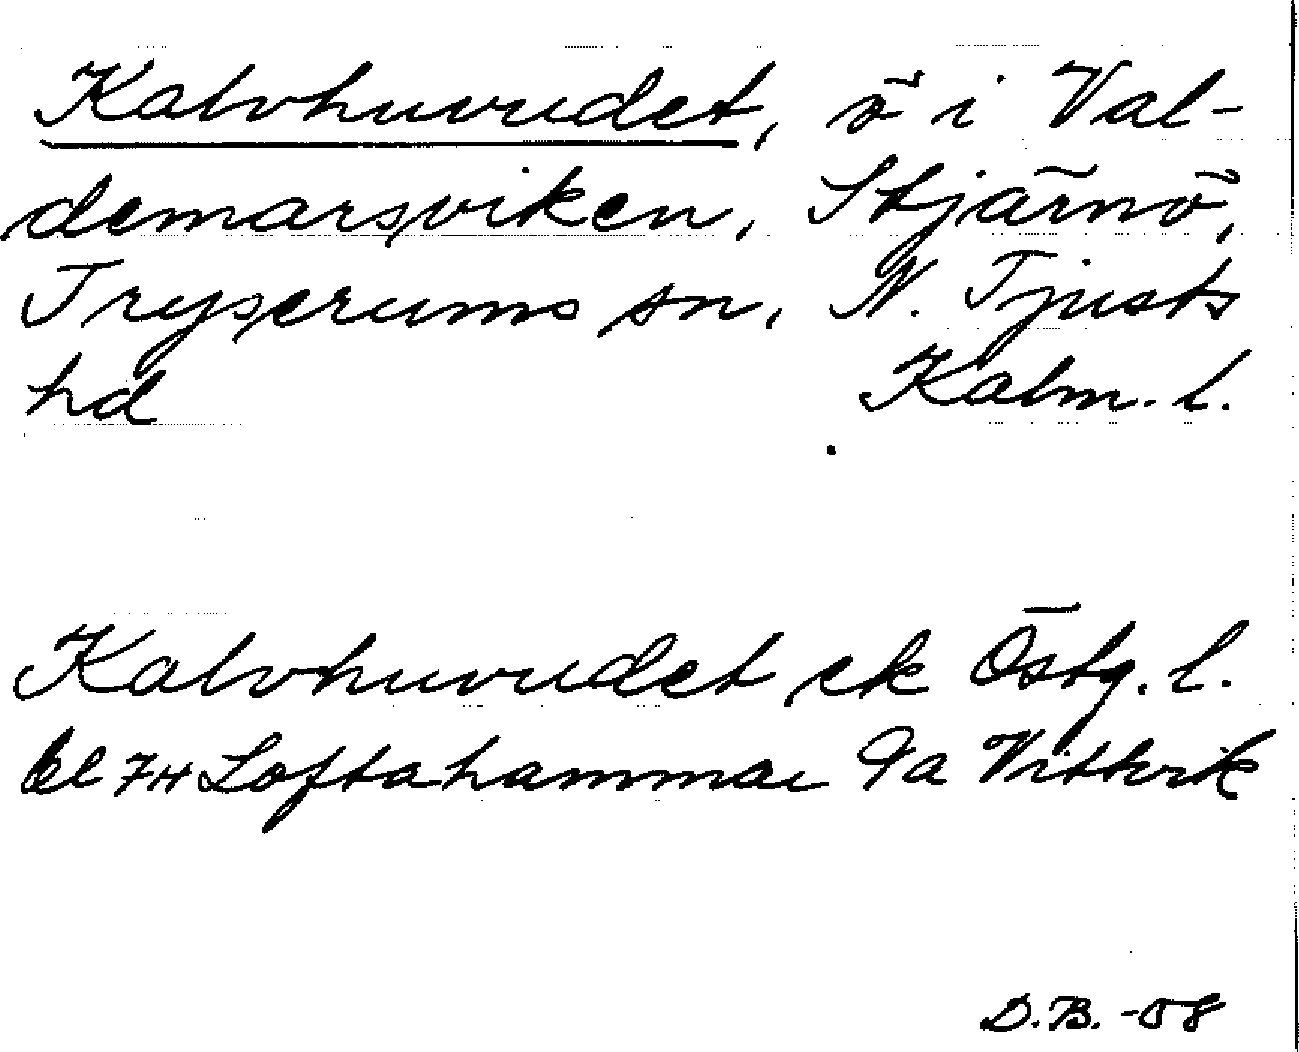 Kalvhuvudet, ö i Val-
demarsviken, Stjärnö,
Tryserums sn, N. Tjusts
hd Kalm. l.
Kalvhuvudet ek Östg. l.
bl 7H Loftahammar 9a Vitterik
D.B. -08